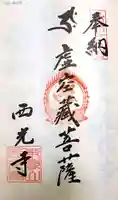 奉納
虚空蔵菩薩
西光寺